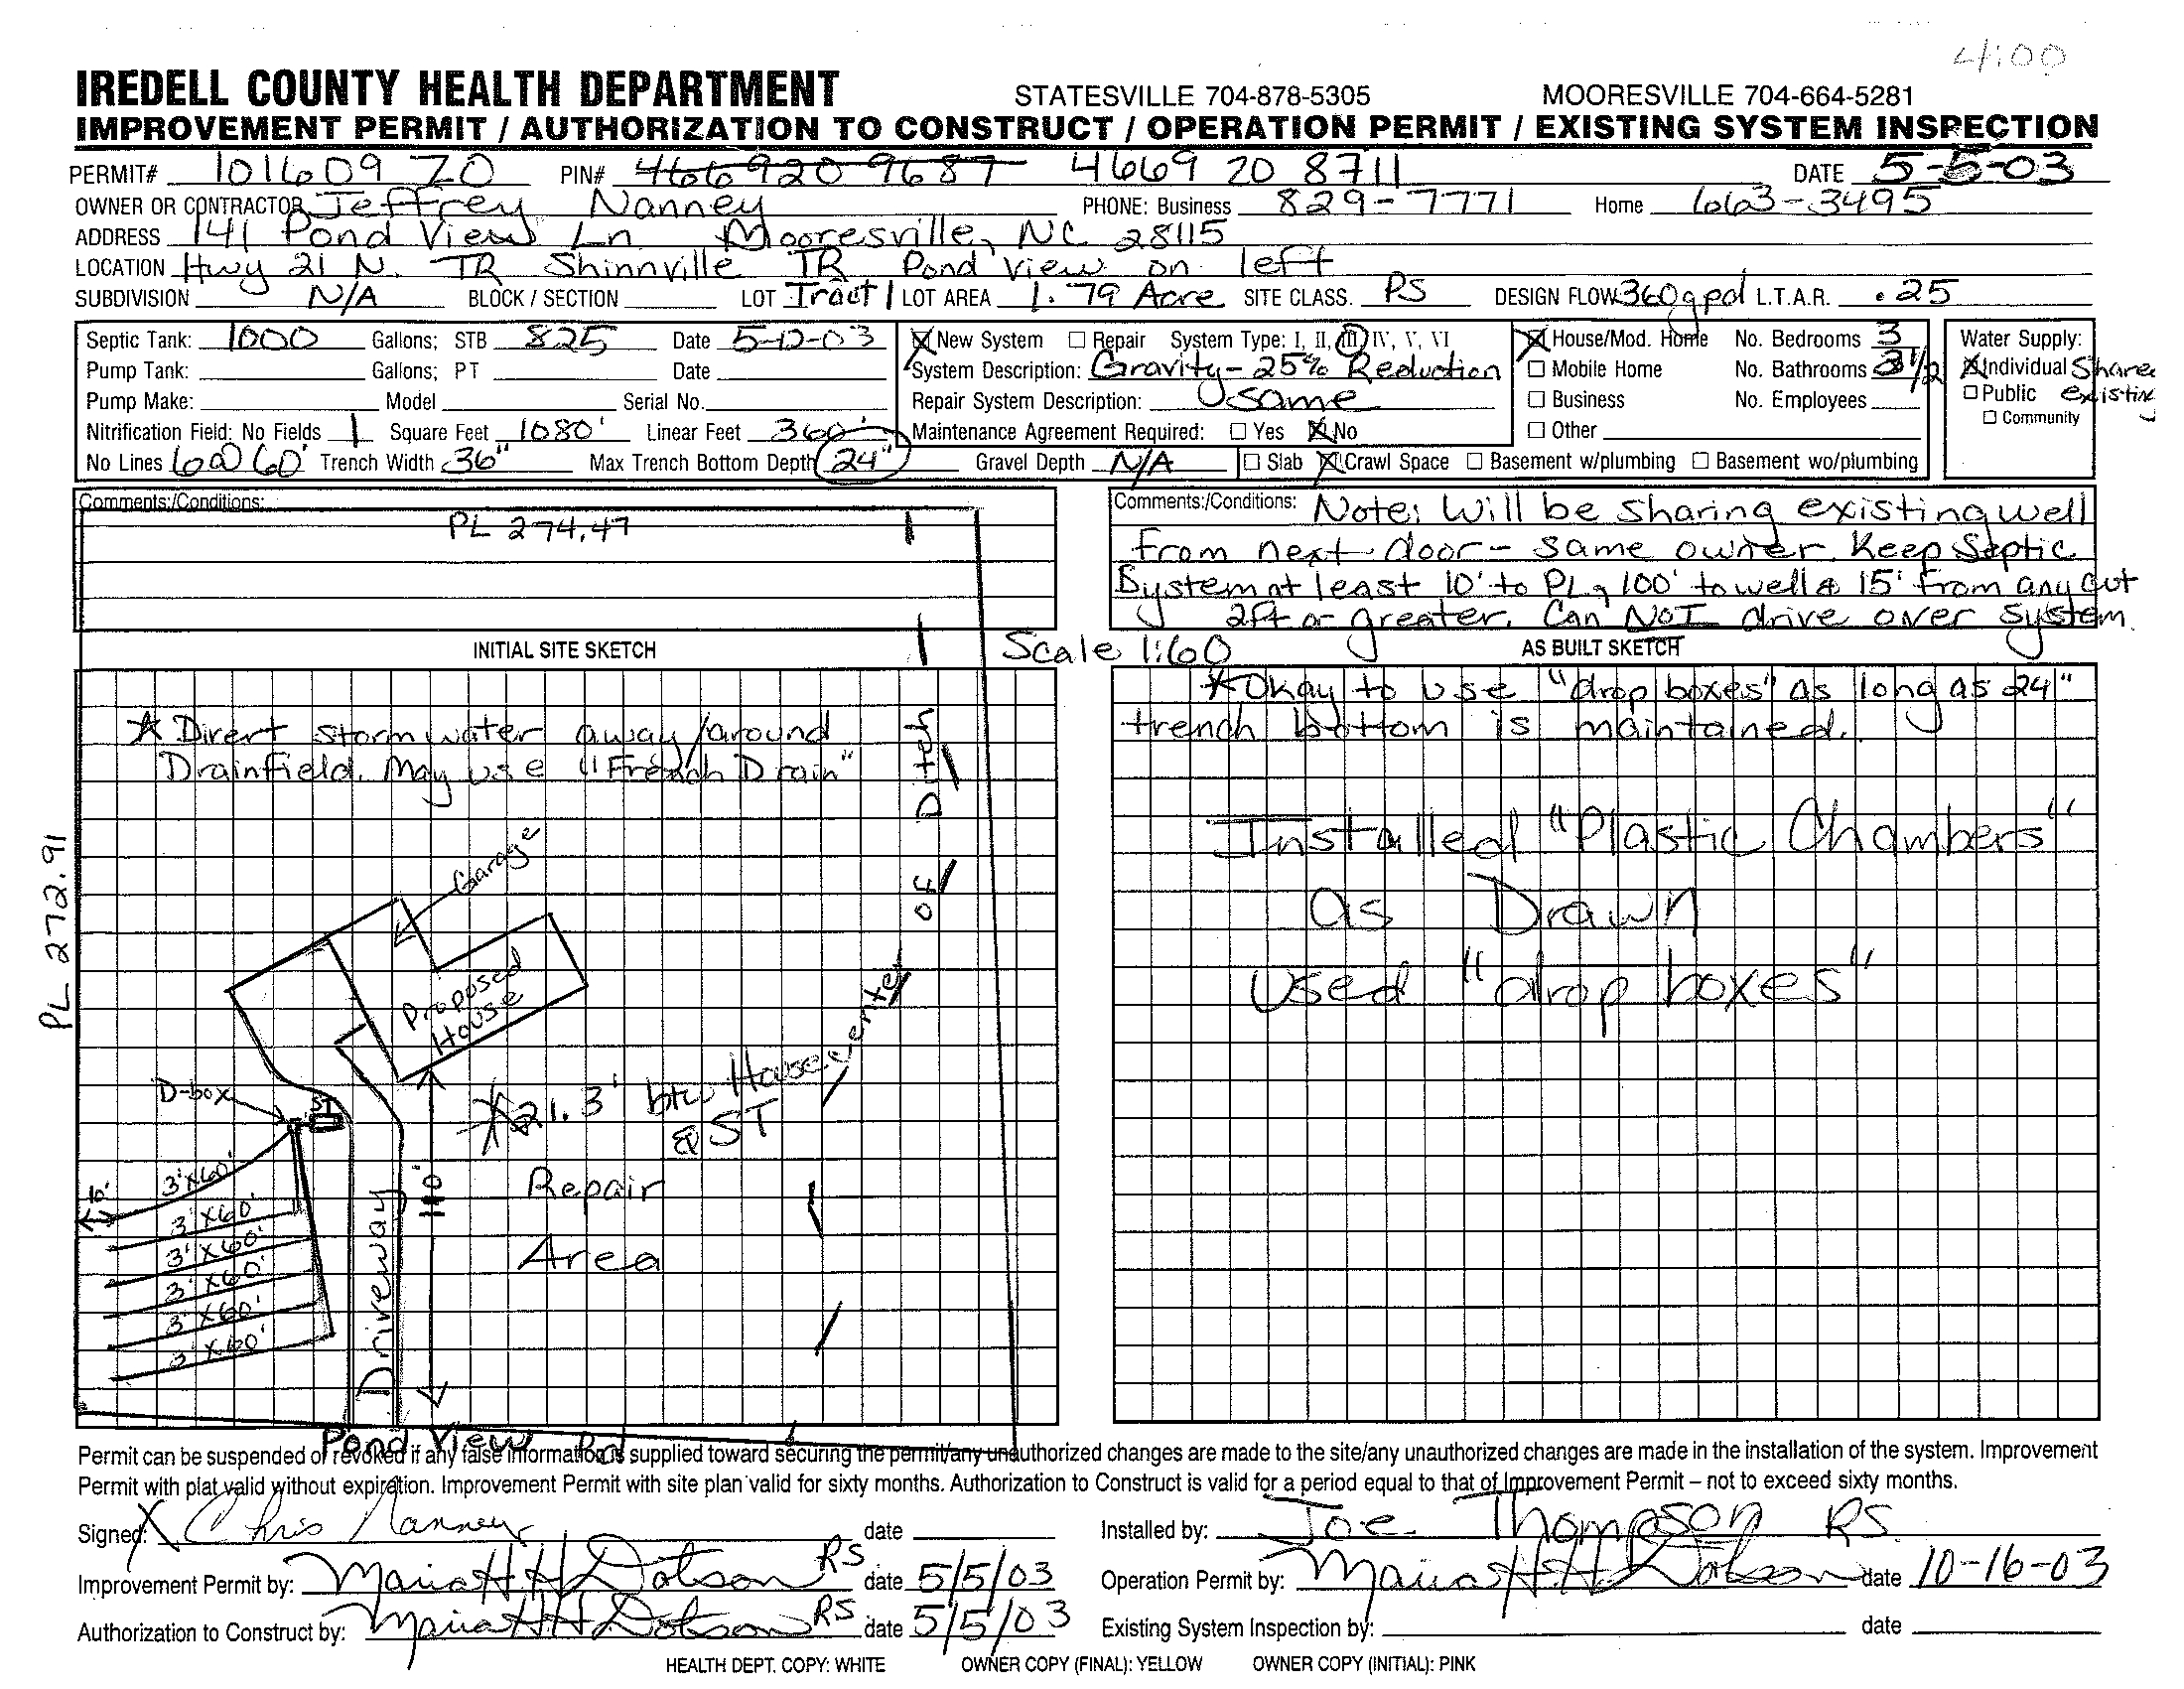 4:00
IREDELL COUNTY HEALTH DEPARTMENT STATESVILLE 704-878-5305 MOORESVILLE 704-664-5281
IMPROVEMENT PERMIT / AUTHORIZATION TO CONSTRUCT / OPERATION PERMIT / EXISTING SYSTEM INSPECTION
PERMIT# 101609 ZO PIN# 4669209687 4669 20 8711 DATE 5-5-03
OWNER OR CONTRACTOR Jeffrey Nanney PHONE: Business 829-7771 Home 663-3495
ADDRESS 141 Pond View Ln Mooresville, NC 28115
LOCATION Hwy 21 N. TR Shinnville TR Pond View on left
SUBDIVISION N/A BLOCK / SECTION LOT Tract 1 LOT AREA 1.79 Acre SITE CLASS. PS DESIGN FLOW 360gpd L.T.A.R. .25
Septic Tank: 1000 Gallons; STB 825 Date 5-12-03
Pump Tank: Gallons; PT Date
Pump Make: Model Serial No.
Nitrification Field: No Fields 1 Square Feet 1080' Linear Feet 360'
No Lines 6@60' Trench Width 36" Max Trench Bottom Depth 24" Gravel Depth N/A
New System Repair System Type: I, II, III, IV, V, VI
System Description: Gravity - 25% Reduction
Repair System Description: same
Maintenance Agreement Required: Yes No
Slab Crawl Space Basement w/plumbing Basement wo/plumbing
House/Mod. Home No. Bedrooms 3
Mobile Home No. Bathrooms 3 1/2
Business No. Employees
Other
Water Supply:
Individual Share
Public existing
Community
Comments:/Conditions:
PL 274.47
Comments:/Conditions: Note: Will be sharing existing well
from next door - same owner. Keep Septic
System at least 10' to PL, 100' to well & 15' from any cut
2ft or greater. Can NOT drive over system.
INITIAL SITE SKETCH
Scale 1:60
AS BUILT SKETCH
* Divert storm water away/around
Drainfield. May use "French Drain"
PL 272.91
Garage
Proposed
House
Ditch
or
center
D-box
ST
* 21.3' btw House
& ST
10'
3'X60'
3'X60'
3'X60'
3'X60'
3'X60'
3'X60'
Driveway
110'
Repair
Area
Pond View Rd
* Okay to use "drop boxes" as long as 24"
trench bottom is maintained.
Installed "Plastic Chambers"
as Drawn
used "drop boxes"
Permit can be suspended or revoked if any false information is supplied toward securing the permit/any unauthorized changes are made to the site/any unauthorized changes are made in the installation of the system. Improvement
Permit with plat valid without expiration. Improvement Permit with site plan valid for sixty months. Authorization to Construct is valid for a period equal to that of Improvement Permit – not to exceed sixty months.
Signed: X Chris Nanney date
Improvement Permit by: Maria H H Dotson RS date 5/5/03
Authorization to Construct by: Maria H H Dotson RS date 5/5/03
Installed by: Joe Thompson RS
Operation Permit by: Maria H H Dotson date 10-16-03
Existing System Inspection by: date
HEALTH DEPT. COPY: WHITE OWNER COPY (FINAL): YELLOW OWNER COPY (INITIAL): PINK